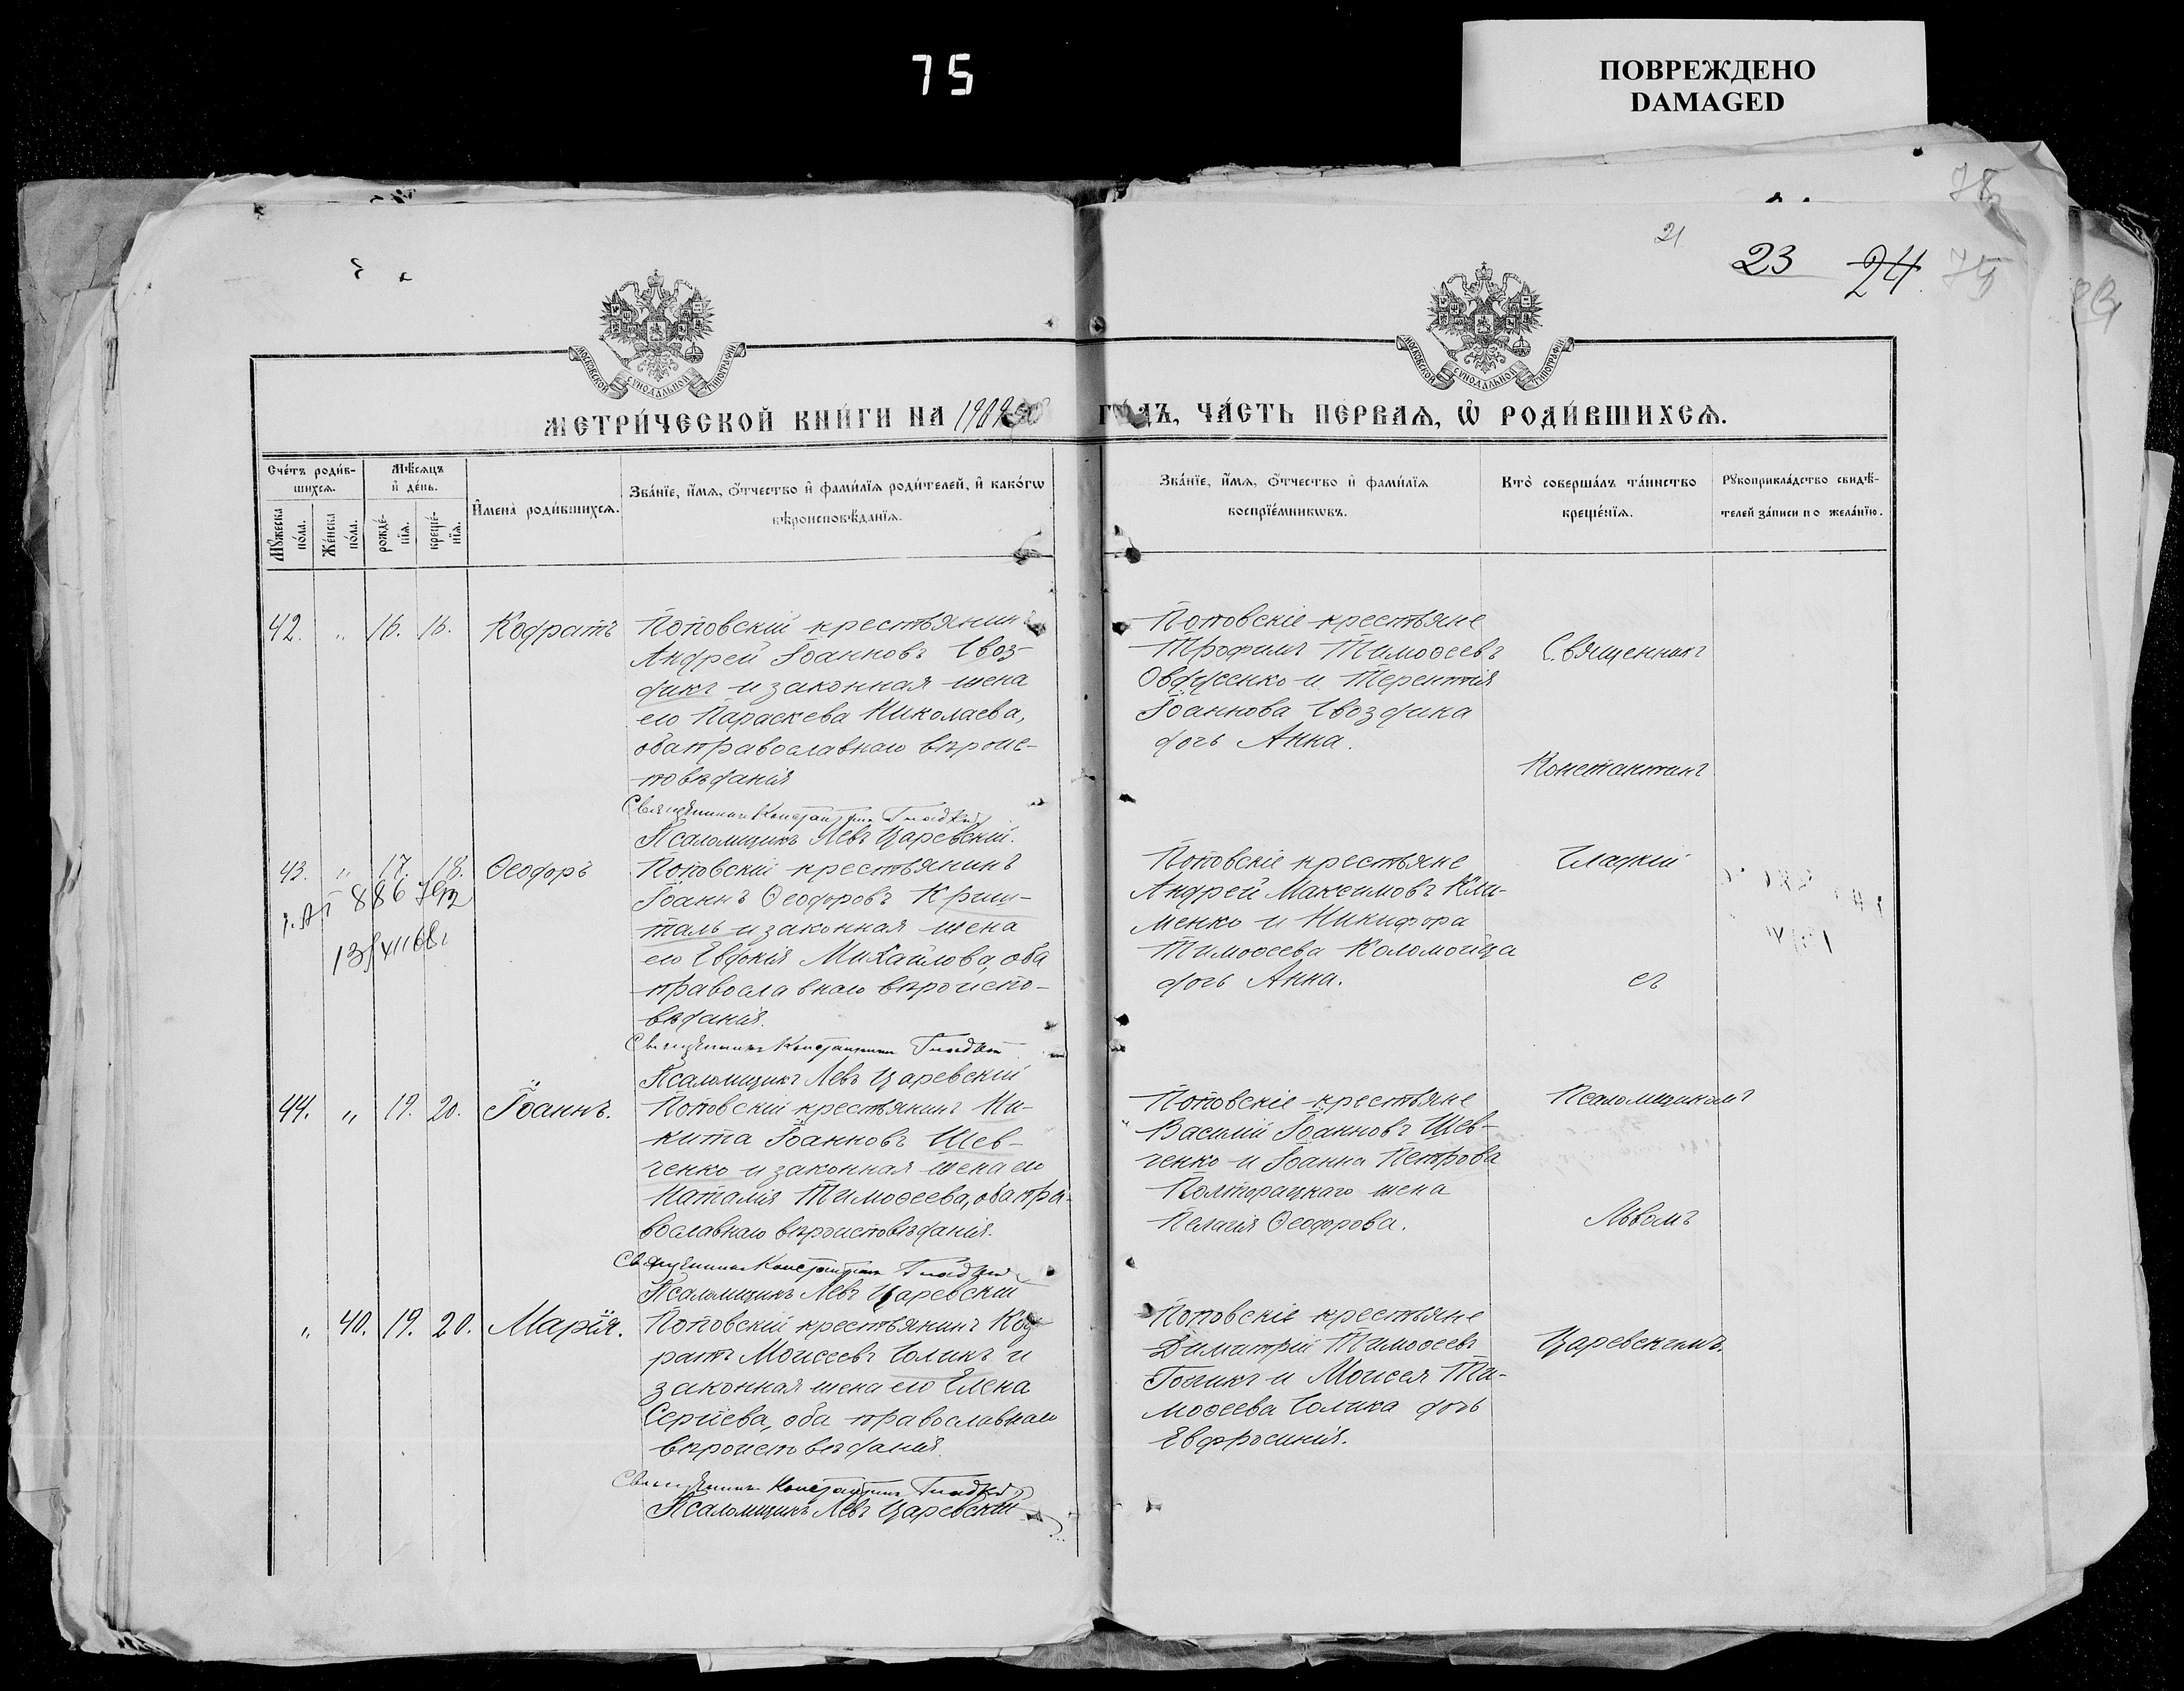 75
ПОВРЕЖДЕНО
DAMAGED
21
23 24 75
МОСКОВСКОЙ СѴНОДАЛЬНОЙ ТИПОГРАФІИ
МОСКОВСКОЙ СѴНОДАЛЬНОЙ ТИПОГРАФІИ
МЕТРИ́ЧЕСКОЙ КНИ́ГИ НА 1909 ГО́ДЪ, ЧА́СТЬ ПЕ́РВАѦ, Ѿ РОДИ́ВШИХСѦ.
Сче́тъ роди́в-
шихсѧ.
Мꙋ́жеска по́ла.
Же́нска по́ла.
Мѣ́сѧцъ
и҆ де́нь.
рожде́-
нїѧ.
креще́-
нїѧ.
И҆мена̀ роди́вшихсѧ.
Зва́нїе, и҆́мѧ, ѻ҆́тчество и҆ фами́лїѧ роди́телей, и҆ како́гѡ
вѣроисповѣ́данїѧ.
Зва́нїе, и҆́мѧ, ѻ҆́тчество и҆ фами́лїѧ
воспрїе́мникѡвъ.
Кто̀ соверша́лъ та́инство
креще́нїѧ.
Рꙋкоприкла́дство свидѣ́-
телей за́писи по жела́нїю.
42. " 16. 16. Кодратъ
Поповскій крестьянинъ
Андрей Іоанновъ Гвоз-
дикъ и законная жена
его Параскева Николаева,
оба православнаго вѣроис-
повѣданія
Священникъ Константинъ Гладкій
Псаломщикъ Левъ Царевскій.
Поповскіе крестьяне
Трофимъ Тимоѳеевъ
Овдіенко и Терентія
Іоаннова Гвоздика
дочь Анна.
Священникъ
Константинъ
43. " 17. 18. Ѳеодоръ
886792
13/XII 68г
Поповскій крестьянинъ
Іоаннъ Ѳеодоровъ Криш-
таль и законная жена
его Евдокія Михайлова, оба
православнаго вѣроиспо-
вѣданія.
Священникъ Константинъ Гладкій
Псаломщикъ Левъ Царевскій
Поповскіе крестьяне
Андрей Максимовъ Кли-
менко и Никифора
Тимоѳеева Коломойца
дочь Анна.
Гладкій
съ
44. " 19. 20. Іоаннъ.
Поповскій крестьянинъ Ни-
кита Іоанновъ Шев-
ченко и законная жена его
Наталія Тимоѳеева, оба пра-
вославнаго вѣроисповѣданія.
Священникъ Константинъ Гладкій
Псаломщикъ Левъ Царевскій
Поповскіе крестьяне
Василій Іоанновъ Шев-
ченко и Іоанна Петрова
Полторацкаго жена
Пелагія Ѳеодорова.
Псаломщикомъ
Львомъ
" 40. 19. 20. Марія.
Поповскій крестьянинъ Код-
ратъ Моисеевъ Голикъ и
законная жена его Елена
Сергіева, оба православнаго
вѣроисповѣданія.
Священникъ Константинъ Гладкій
Псаломщикъ Левъ Царевскій
Поповскіе крестьяне
Димитрій Тимоѳеевъ
Голикъ и Моисея Ти-
моѳеева Голика дочь
Евфросинія.
Царевскимъ.